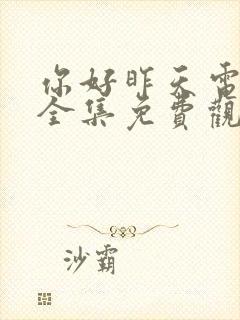 你好昨天電
全集免費觀
沙霸